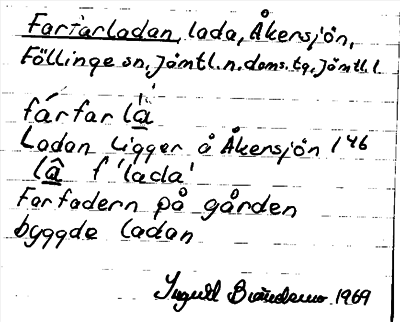 Farfarladan, lada, Åkersjön,
Föllinge sn, Jämtl. n. doms. tg, Jämtl. l.
fárfarlà
Ladan ligger å Åkersjön 1⁴⁶
lâ f 'lada'
Farfadern på gården
byggde ladan
1969